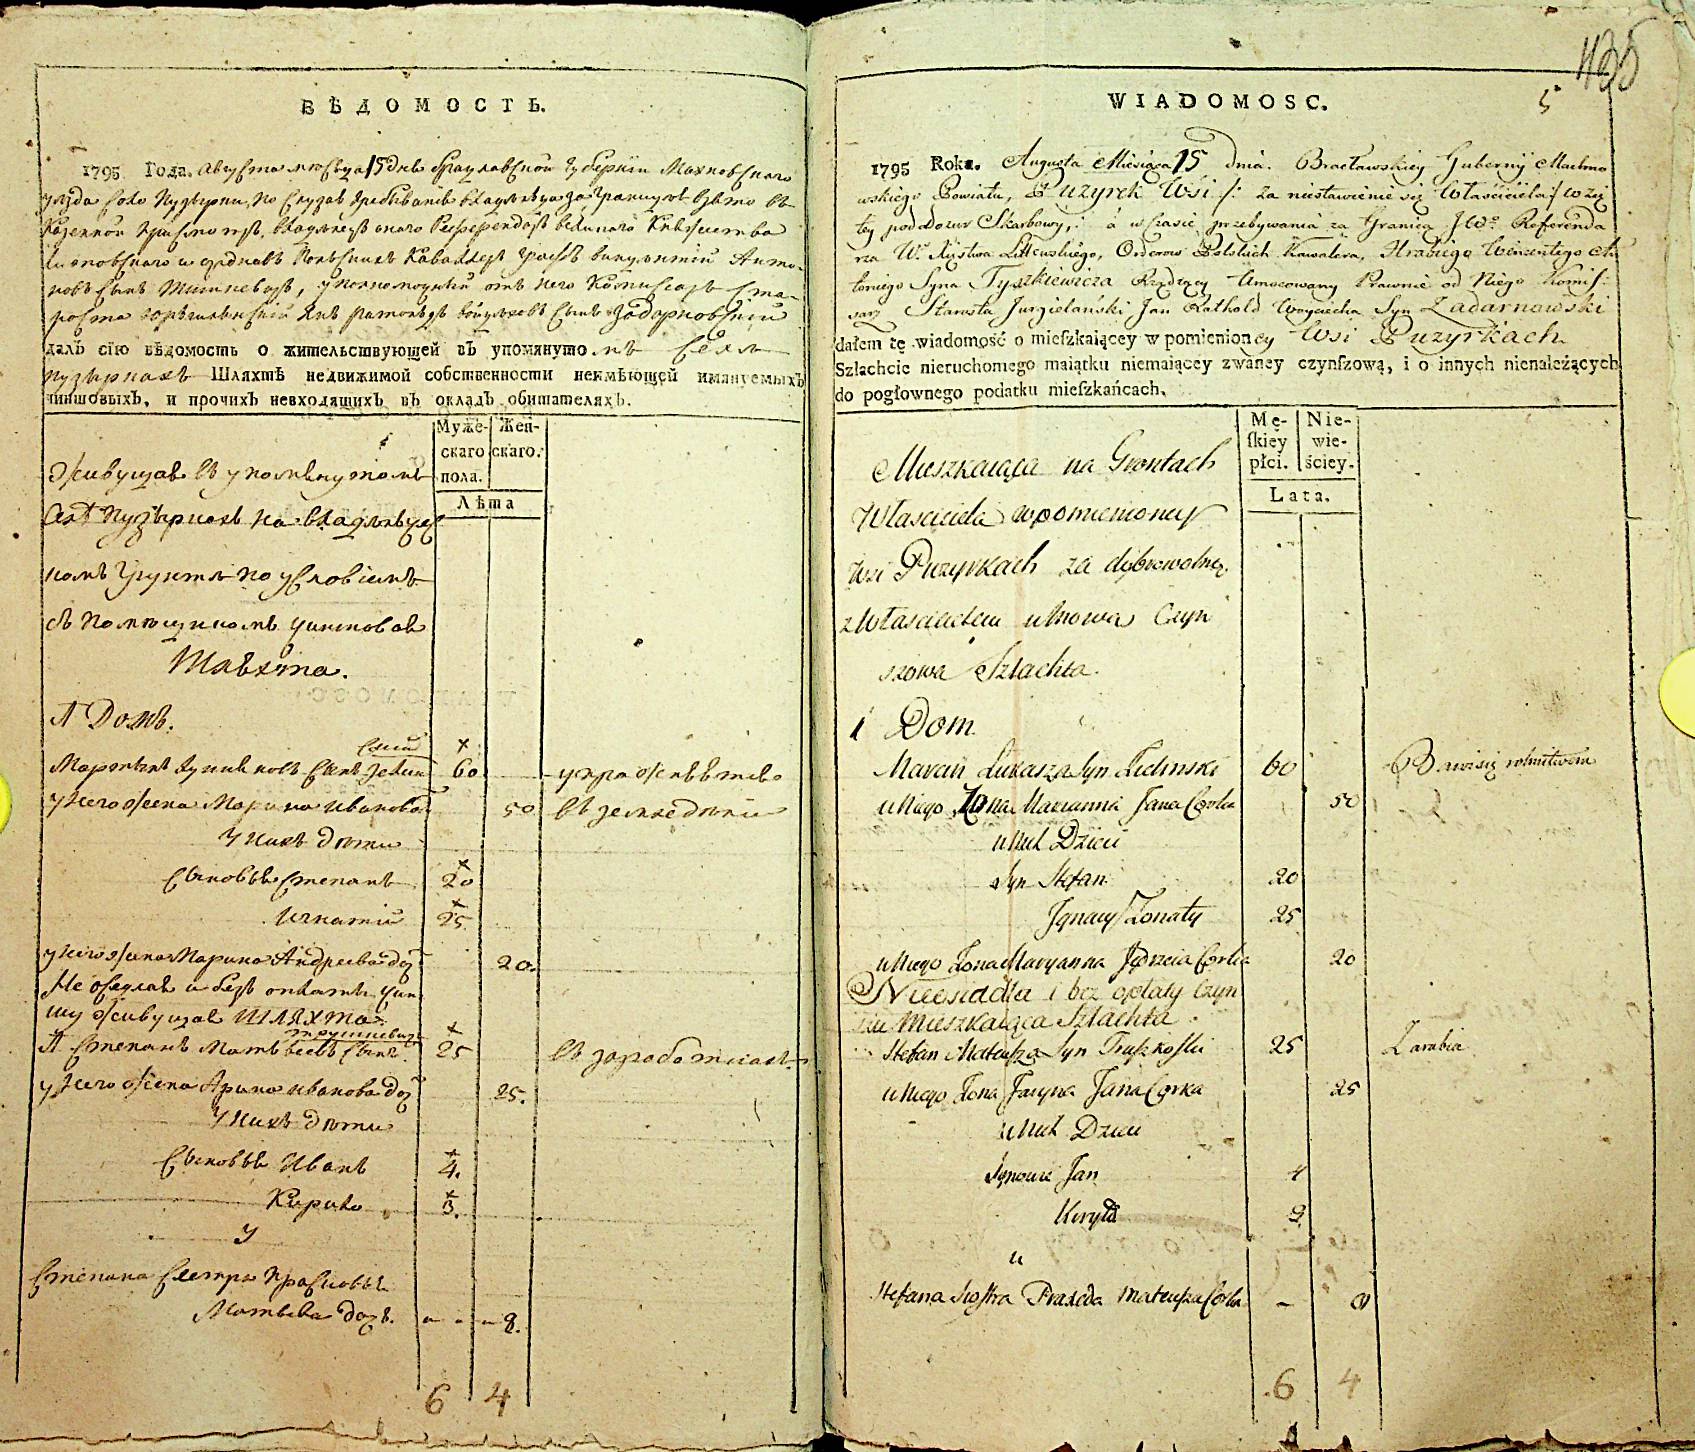 ВѢДОМОСТЬ.
1795 Года. августа месяца 15 дня Брацлавской губернии Махновскаго
уезда села Пузырки, по случаю пребывания владельца за границею взято въ
Казенной присмотръ, владелецъ онаго Референдарь великаго Княжества
Литовскаго и орденовъ Польскихъ Кавалеръ Графъ Викентий Анто-
новъ сынъ Тишкевичъ, уполномоцный отъ него Комисаръ Ста-
роста Янъ войцеховъ сынъ Задарновский
далъ сїю вѣдомость о жительствующей въ упомянутомъ селе
Пузыркахъ Шляхтѣ недвижимой собственности неимѣющей имянуемыхъ
чиншовыхъ, и прочихъ невходящихъ въ окладъ обитателяхъ.
Муже-
скаго
пола.
Жен-
скаго.
Лѣта
Живущая въ упомянутомъ
селѣ Пузыркахъ на владельчес
комъ грунте по условиямъ
съ помещикомъ чиншовая
Шляхта.
1 Домъ.
Мартынъ Лукинковъ сынъ 60 упражняется
у него жена Марина иванова 50 въ земледелии
у нихъ дети
сыновья Степанъ 20
Игнатий 25
у него жена Марина Андреева доч 20.
Не оседлая и безъ оплаты чин
шу живущая Шляхта.
1 Степанъ Матвеевъ сынъ 25 въ заработкахъ
у него жена Арина иванова доч 25.
у нихъ дети
сыновья Иванъ 4.
Кирило 3.
у
Степана сестра Прасковья
Матвева дочь. 8.
6 4
435
5
WIADOMOSC.
1795 Roku. Augusta Miesiąca 15 dnia. Bracławskiey Gubernij Machno
wskiego Powiatu, Puzyrek Wśi /: za niestawienie się Właściciela :/ wzię
tey pod dozor Skarbowy, : a w czasie przebywania za Granicą JWo Referenda
rza W. Xięstwa Litewskiego, Orderow Polskich Kawalera, Hrabiego Wincentego An
toniego Syna Tyszkiewicza Rządzący Umocowany Prawnie od Niego Komis:
sarz Starosta Jurgielański Jan Rathold Woyciecha Syn Zadarnowski
dałem tę wiadomość o mieſzkaiącey w pomienioney Wsi Puzyrkach
Szlachcie nieruchomego maiątku niemaiącey zwaney czynſzową, i o innych nienależących
do pogłownego podatku mieſzkańcach.
Mę-
ſkiey
płci.
Nie-
wie-
ściey.
Lata.
Mieszkaiąca na Grontach
Własciciela wpomienioney
Wsi Puzyrkach za dobrowolną
z Włascicielem umową Czyn
szowa Szlachta.
1 Dom
Marcin Łukasza Syn Zielinski 60 Bawisię rolnictwem
u Niego Zona Maryanna Jana Corka 50
u Nich Dzieci
Syn Stefan 20
Jgnacy Zonaty 25
u Niego Zona Maryanna Jędrzeia Corka 20
Nieosiadła i bez opłaty Czyn
szu Mieszkaiąca Szlachta.
Stefan Mateusza Syn Truszkoſki 25 Zarabia
u Niego Zona Jaryna Jana Corka 25
u Nich Dzieci
Synowie Jan 4
Kiryło 3
u
Stefana Siostra Praxeda Mateusza Corka –
6 4